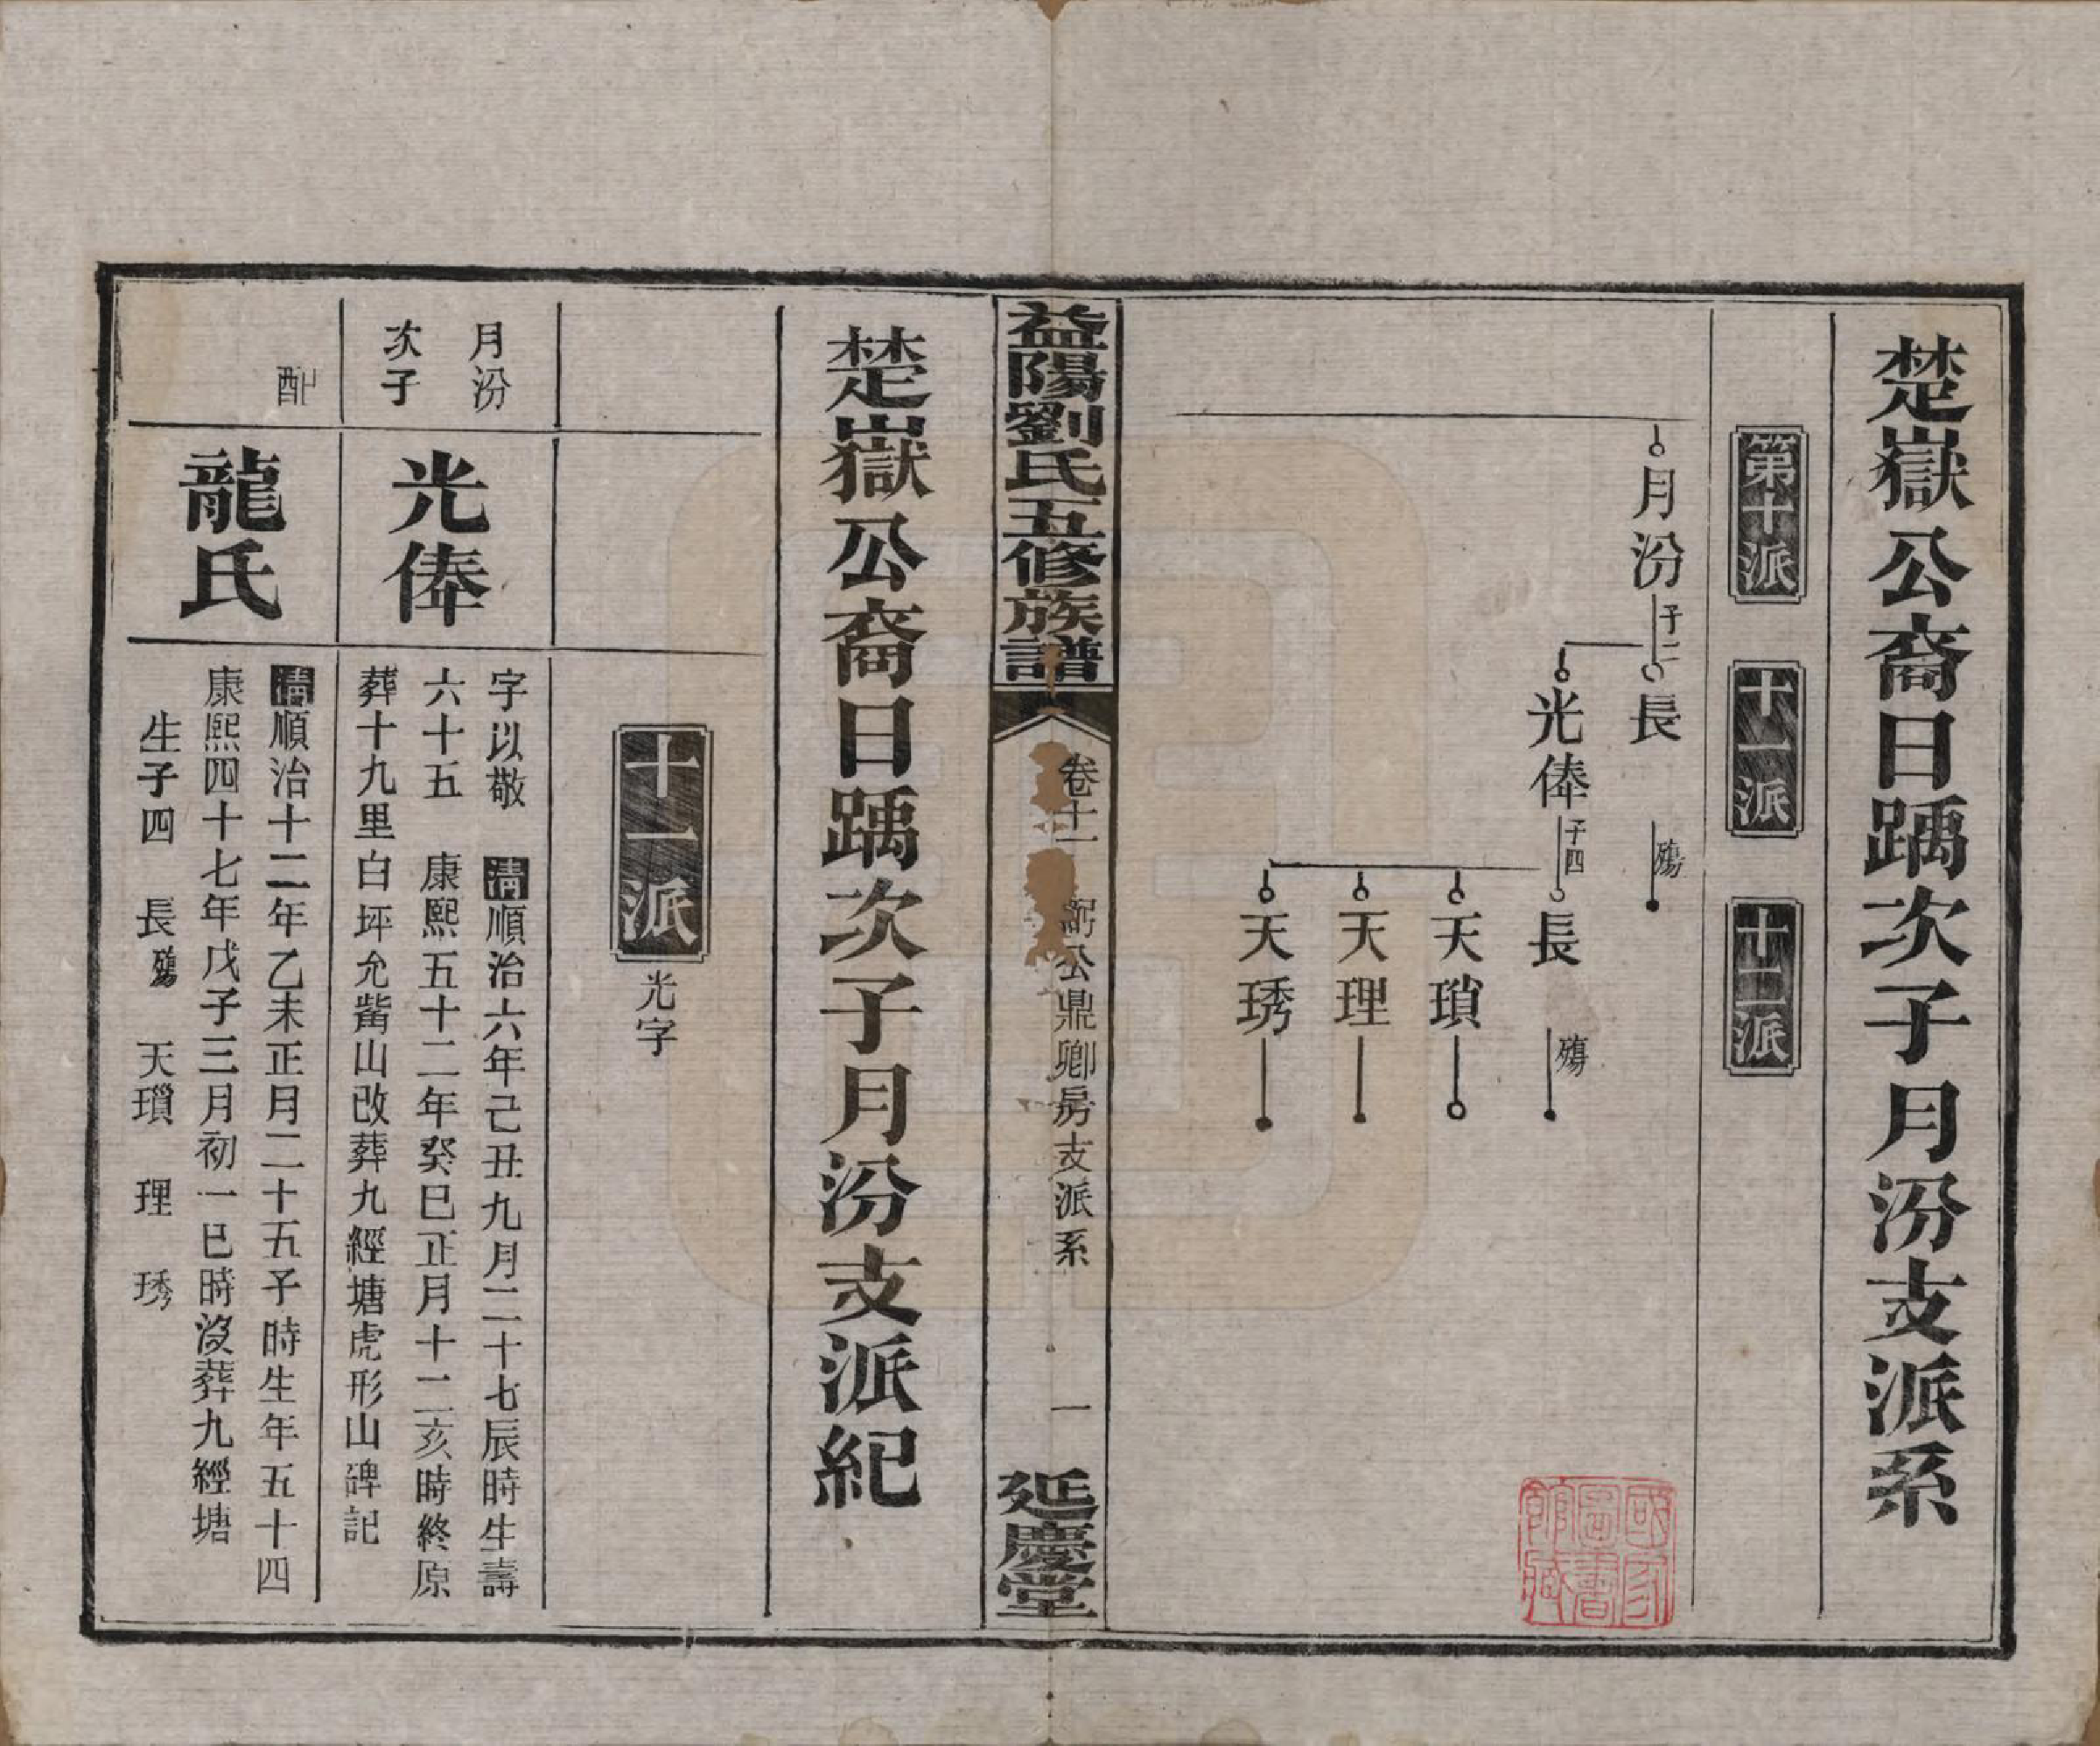 楚嶽公裔日踽次子月汾支派系
第十派
十一派
十二派
月汾
子二
長
殤
光俸
子四
長
殤
天瑣
天理
天琇
國家圖書館藏
益陽劉氏五修族譜
卷十一
公鼎卿房支派系
一
延慶堂
楚嶽公裔日踽次子月汾支派紀
十一派
光字
月汾
次子
光俸
字以敬 清順治六年己丑九月二十七辰時生壽
六十五 康熙五十二年癸巳正月十二亥時終原
葬十九里白坪允觜山改葬九經塘虎形山碑記
配
龍氏
清順治十二年乙未正月二十五子時生年五十四
康熙四十七年戊子三月初一巳時沒葬九經塘
生子四 長殤 天瑣 理 琇